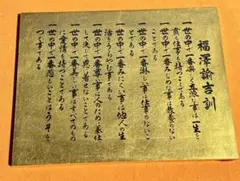 福澤諭吉訓
一世の中で一番楽しく立派な事は一生を
貫く仕事を持つことである
一世の中で一番みじめな事は教養のない
ことである
一世の中で一番淋しい事は仕事のないこ
とである
一世の中で一番みにくい事は他人の生
活をうらやむ事である
一世の中で一番尊い事は人の為に奉仕
して決して恩に着せないことである
一世の中で一番美しい事はすべてのもの
に愛情を持つことである
一世の中で一番悲しいことはうそをつ
く事である